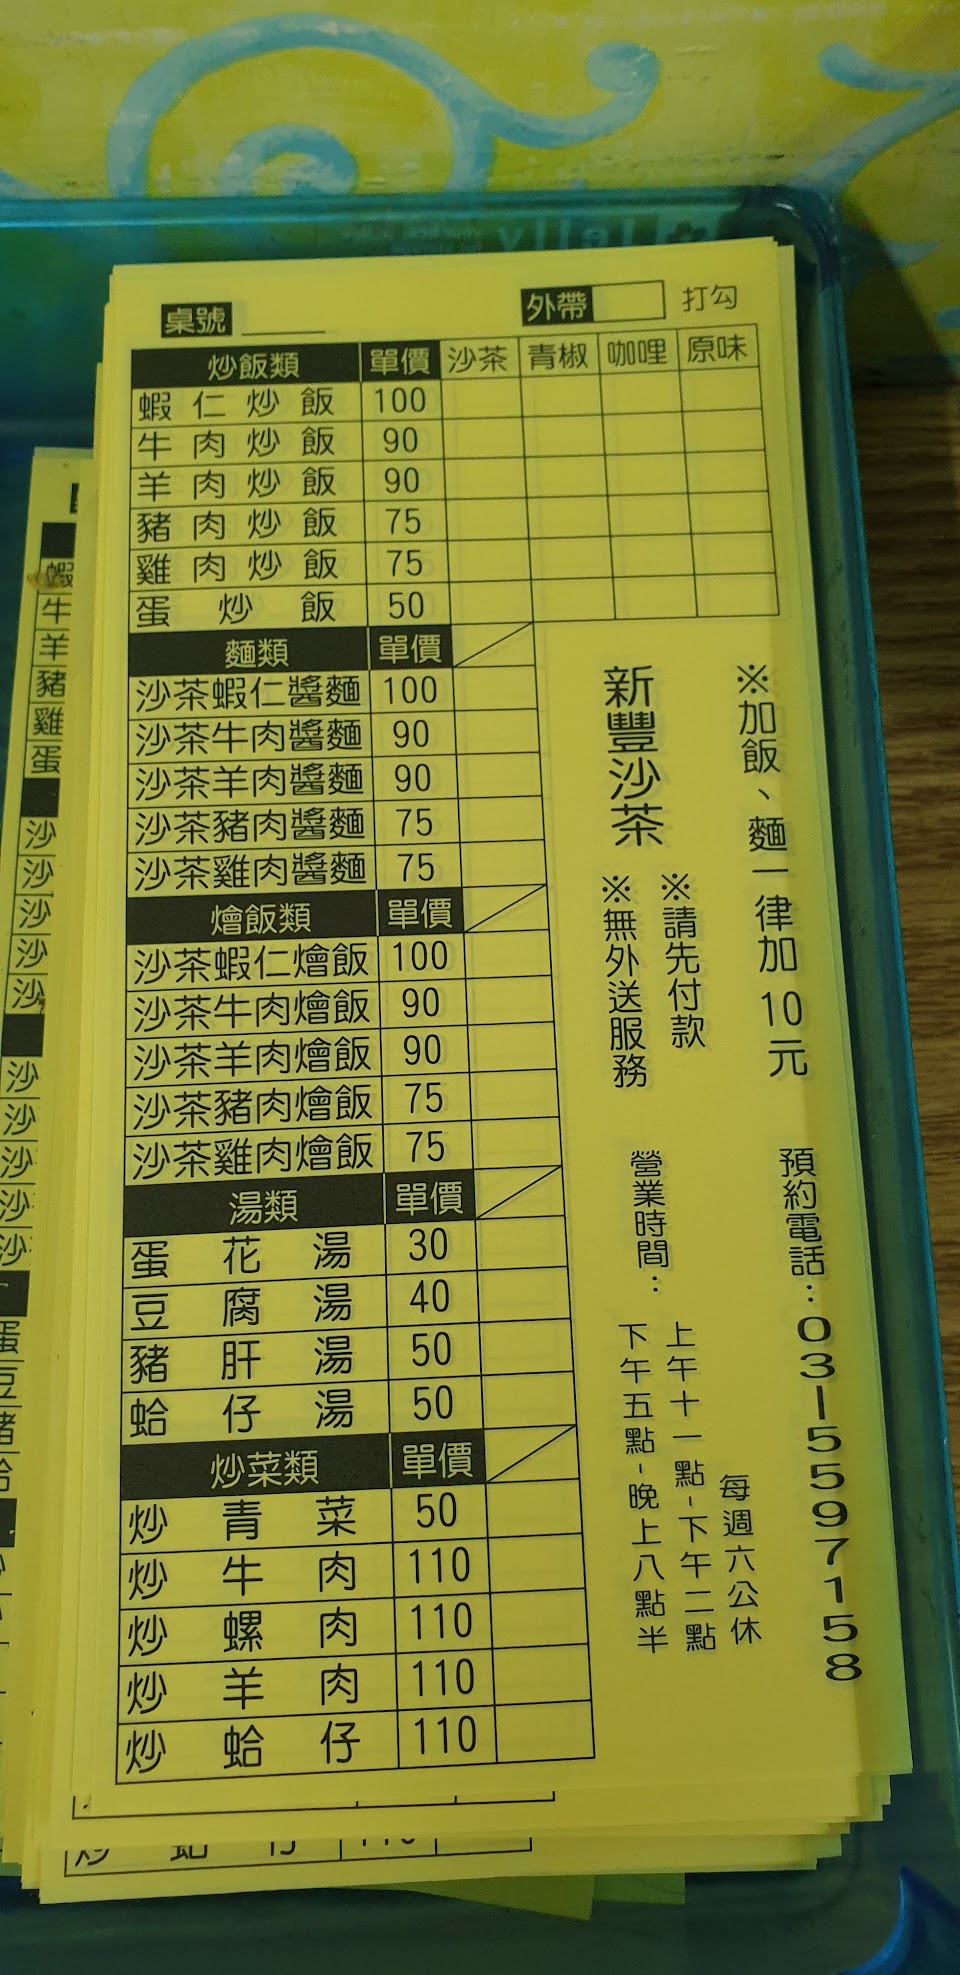 桌號
外帶 打勾
炒飯類 單價 沙茶 青椒 咖哩 原味
蝦仁炒飯 100
牛肉炒飯 90
羊肉炒飯 90
豬肉炒飯 75
雞肉炒飯 75
蛋炒飯 50
麵類 單價
沙茶蝦仁醬麵 100
沙茶牛肉醬麵 90
沙茶羊肉醬麵 90
沙茶豬肉醬麵 75
沙茶雞肉醬麵 75
燴飯類 單價
沙茶蝦仁燴飯 100
沙茶牛肉燴飯 90
沙茶羊肉燴飯 90
沙茶豬肉燴飯 75
沙茶雞肉燴飯 75
湯類 單價
蛋花湯 30
豆腐湯 40
豬肝湯 50
蛤仔湯 50
炒菜類 單價
炒青菜 50
炒牛肉 110
炒螺肉 110
炒羊肉 110
炒蛤仔 110
※加飯、麵一律加10元
新豐沙茶
※請先付款
※無外送服務
預約電話:03-5597158
營業時間:
上午十一點-下午二點
下午五點-晚上八點半
每週六公休
蝦
牛
羊
豬
雞
蛋
沙
沙
沙
沙
沙
沙
沙
沙
沙
沙
蛋
豆
豬
蛤